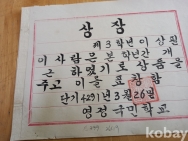 상장
제3학년 이상원
이 사람은 본 학년간 개
근 하였기로 상품을
주고 이를 표창함
단기4291년 3월26일
영정국민학교
kobay